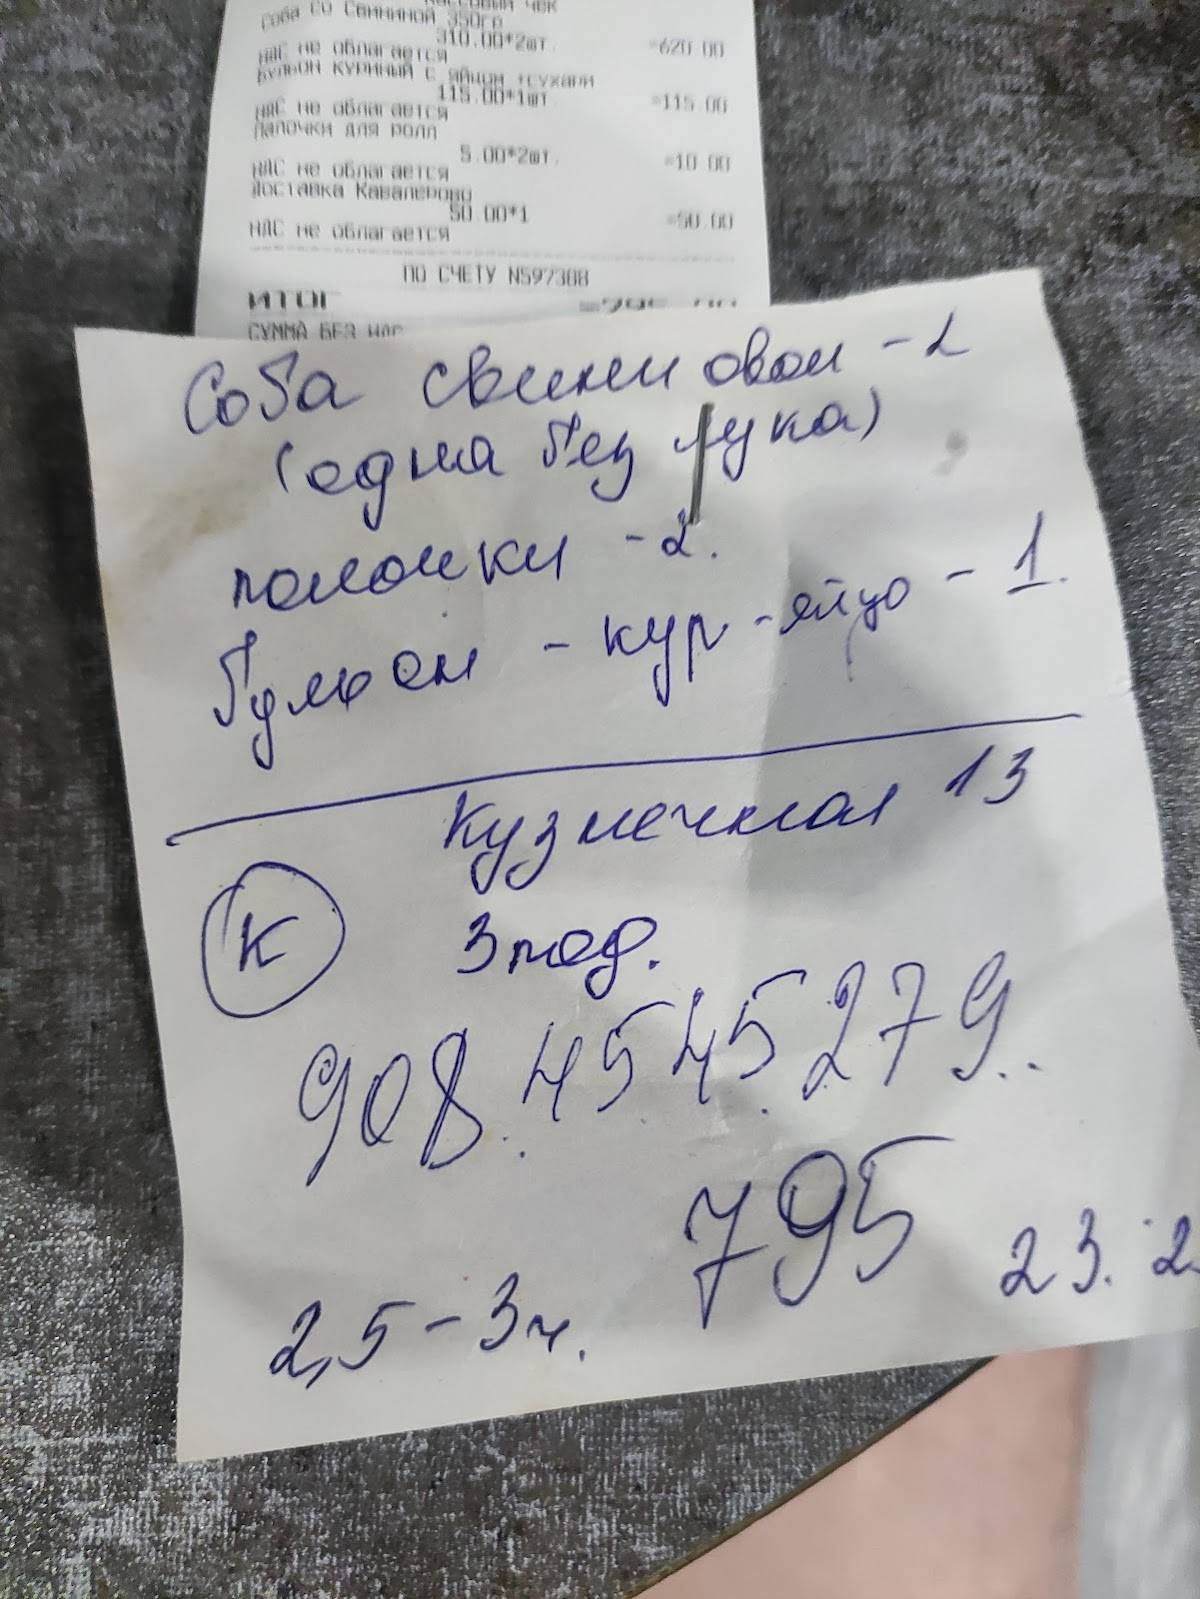 КАССОВЫЙ ЧЕК
Соба со Свининой 350гр
310.00*2шт. =620.00
НДС не облагается
БУЛЬОН КУРИНЫЙ С ЯЙЦОМ +СУХАРИ
115.00*1шт =115.00
НДС не облагается
Палочки для ролл
5.00*2шт. =10.00
НДС не облагается
Доставка Кавалерово
50.00*1 =50.00
НДС не облагается
ПО СЧЕТУ N597308
ИТОГ =795.00
СУММА БЕЗ НДС
Соба свининовая - 2
(одна без лука)
палочки - 2.
бульон - кур - яйцо - 1.
Кузнечная 13
К 3 под.
908.45.45.279..
795
2,5 - 3 ч. 23.2.